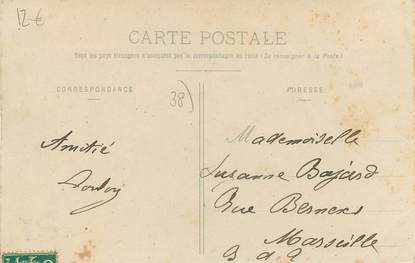 12 €
CARTE POSTALE
Tous les pays étrangers n'acceptent pas la correspondance au recto (Se renseigner à la Poste)
CORRESPONDANCE
ADRESSE
38)
Amitié
Mademoiselle
Suzanne Bajard
Rue Bernex
Marseille